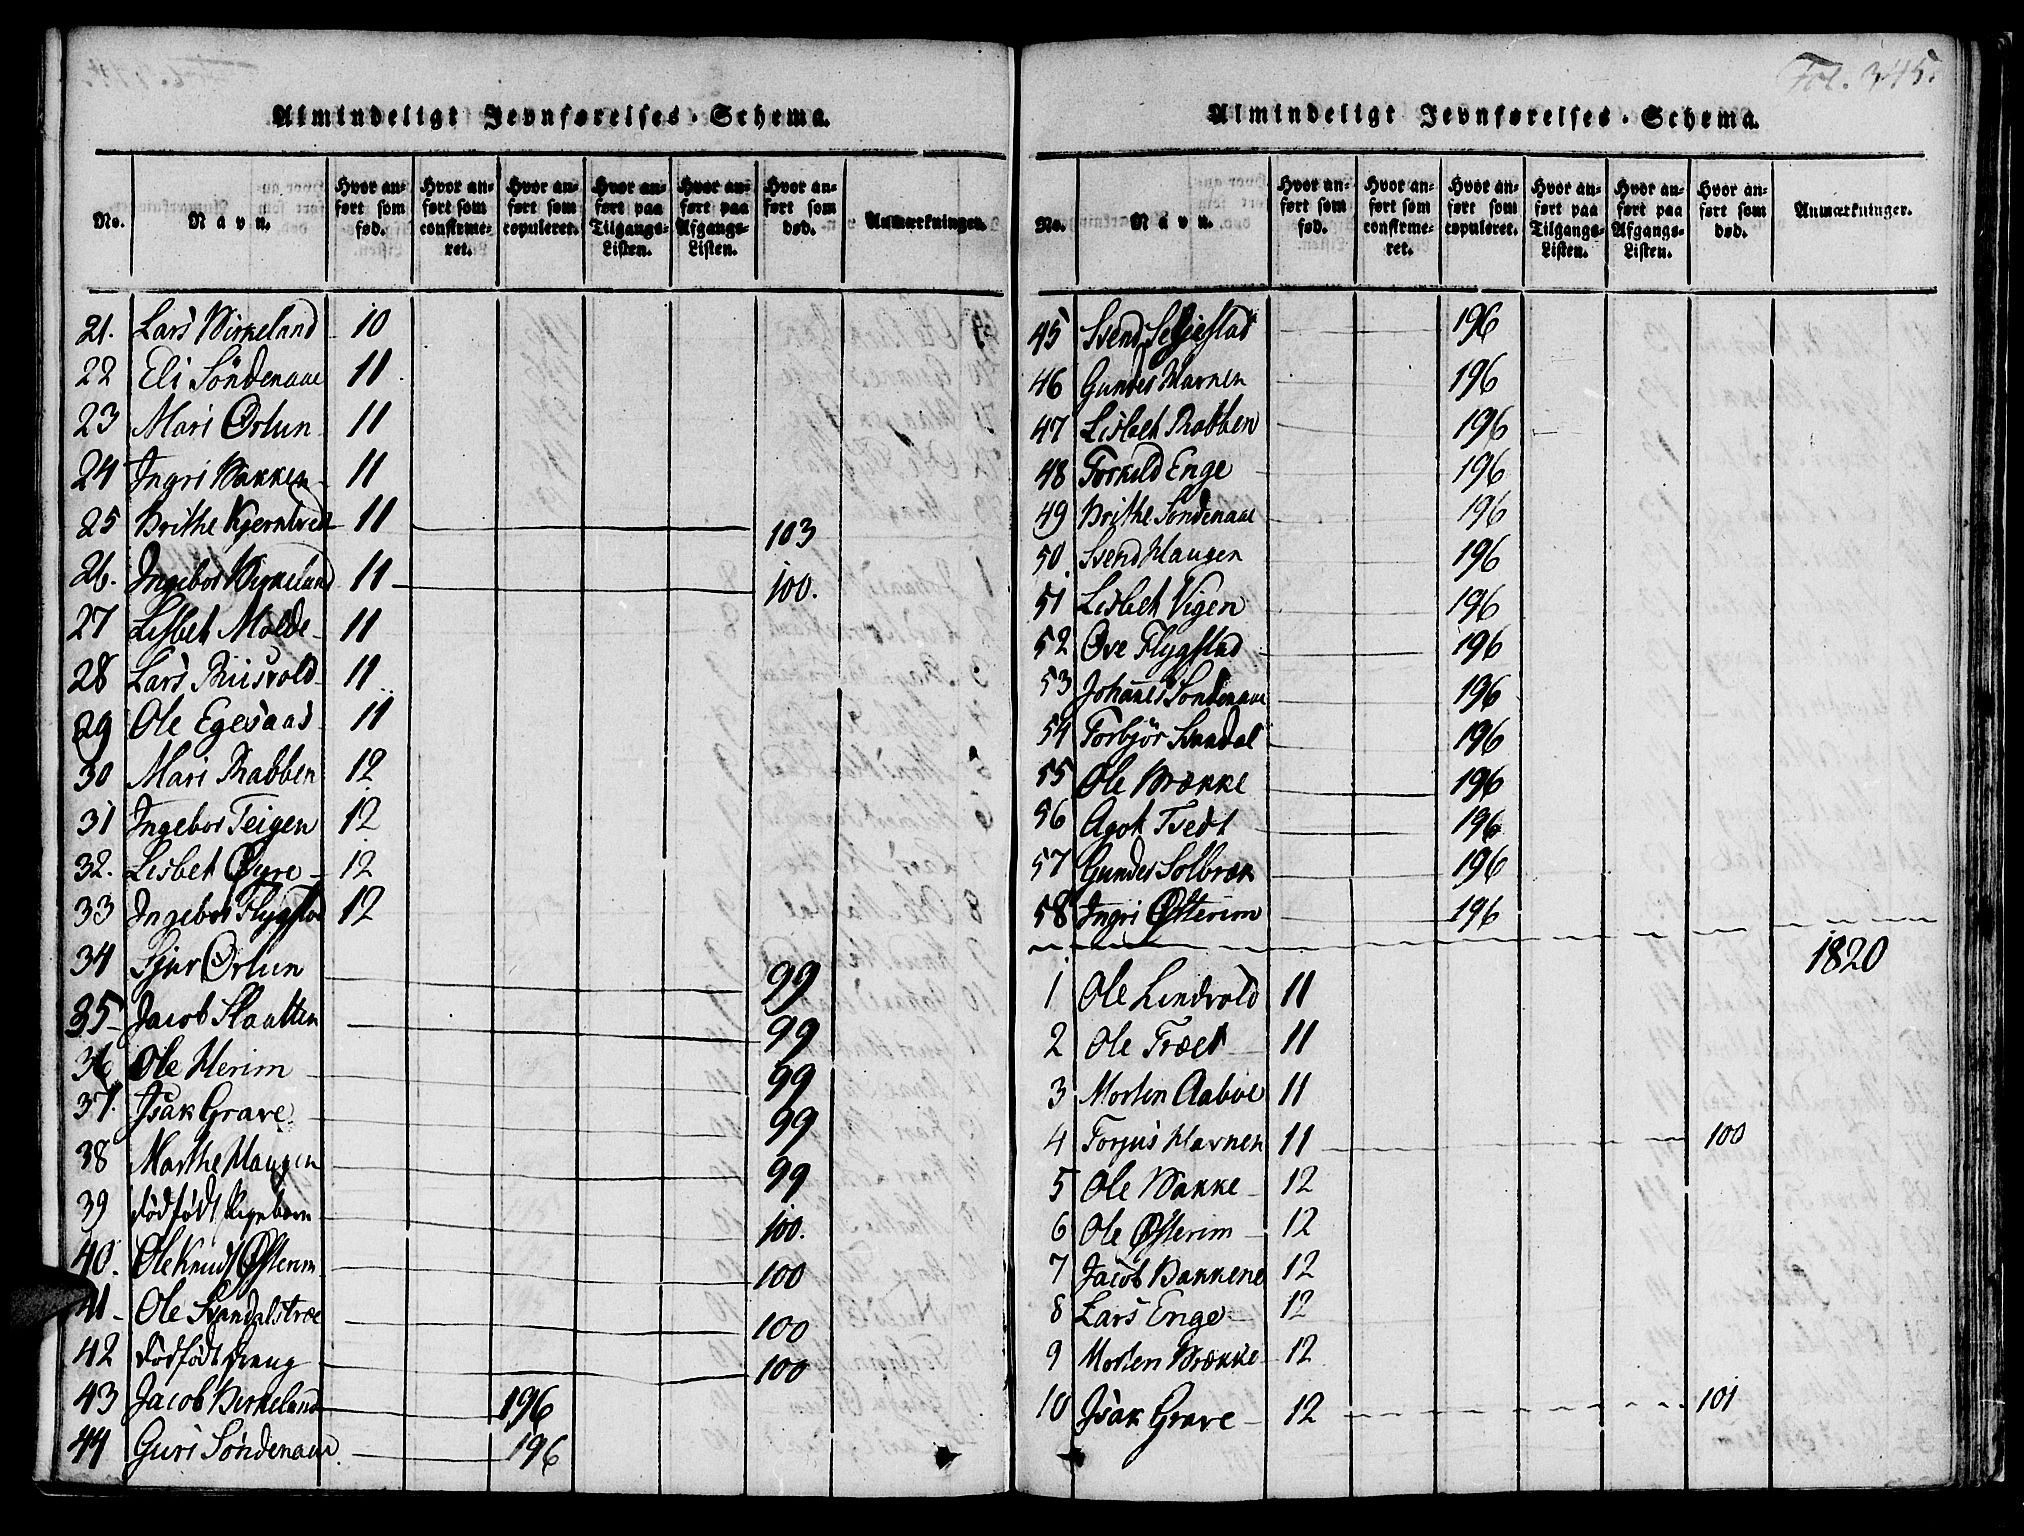 Fol. 345.
Almindeligt Jevnførelses-Schema.
No. Navn. Hvor anført som fød. Hvor anført som confirmeret. Hvor anført som copuleret. Hvor anført paa Tilgangs-Listen. Hvor anført paa Afgangs-Listen. Hvor anført som død. Anmærkninger.
21. Lars Birkeland 10
22 Eli Söndenaae 11
23 Mari Ørlun 11
24 Ingri Bakken 11
25 Brithe 11 103
26. Ingebor Birkeland 11 100.
27 Lisbet Molde 11
28 Lars Riisvold 11
29 Ole Egesaas 11
30 Mari Rabben 12
31 Ingebor Teigen 12
32. Lisbet Øyre 12
33 Ingebor Flygstad 12
34 Sjur Ørlun 99
35 Jacob Slaatten 99
36 Ole Herim 99
37. Isak Grave 99
38 Marthe Haugen 99
39 dödfödt Pigebarn 100.
40. Ole Knuds Østerim 100
41 Ole Svandalstræe 100
42 Dödfödt dreng 100
43 Jacob Birkeland 196
44 Guri Söndenaae 196
Almindeligt Jevnførelses-Schema.
No. Navn. Hvor anført som fød. Hvor anført som confirmeret. Hvor anført som copuleret. Hvor anført paa Tilgangs-Listen. Hvor anført paa Afgangs-Listen. Hvor anført som død. Anmærkninger.
45 Svend Seljestad 196
46 Gunder Havnen 196
47 Lisbet Rabben 196
48 Torkild Enge 196
49 Brithe Söndenaae 196
50. Svend Haugen 196
51 Lisbet Vigen 196
52 Ove Flygstad 196
53 Johanes Söndenaae 196
54 Torbjör Svandal 196
55 Ole Brække 196
56 Agot Tvedt 196
57 Gunder Solbræk 196
58 Ingri Østerim 196
1820
1 Ole Lindvold 11
2 Ole Træet 11
3 Morten Aaboe 11
4 Torjus Havnen 11 100
5 Ole Bakke 12
6 Ole Østerim 12
7 Jacob Bakkene 12
8 Lars Enge 12
9 Morten Brække 12
10 Isak Grave 12 101